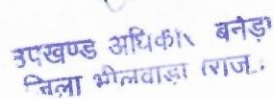 उपखण्ड अधिकारी बनेड़ा
जिला भीलवाड़ा (राज.)